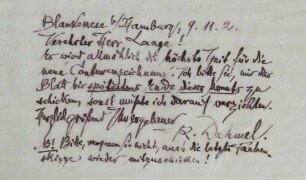 Blankenese b/Hamburg, 9.11.2.
Verehrter Herr Laage!
Es wird allmählich die höchste Zeit für die
neue Conkurrenzeichnung. Ich bitte Sie, mir das
Blatt bis spätestens Ende dieses Monats zu
schicken, sonst müßte ich darauf verzichten.
Hochgrüßend Ihr ergebener
R. Dehmel.
NB! Bitte, vergessen Sie nicht, auch die letzte Farben-
skizze wieder mitzuschicken!